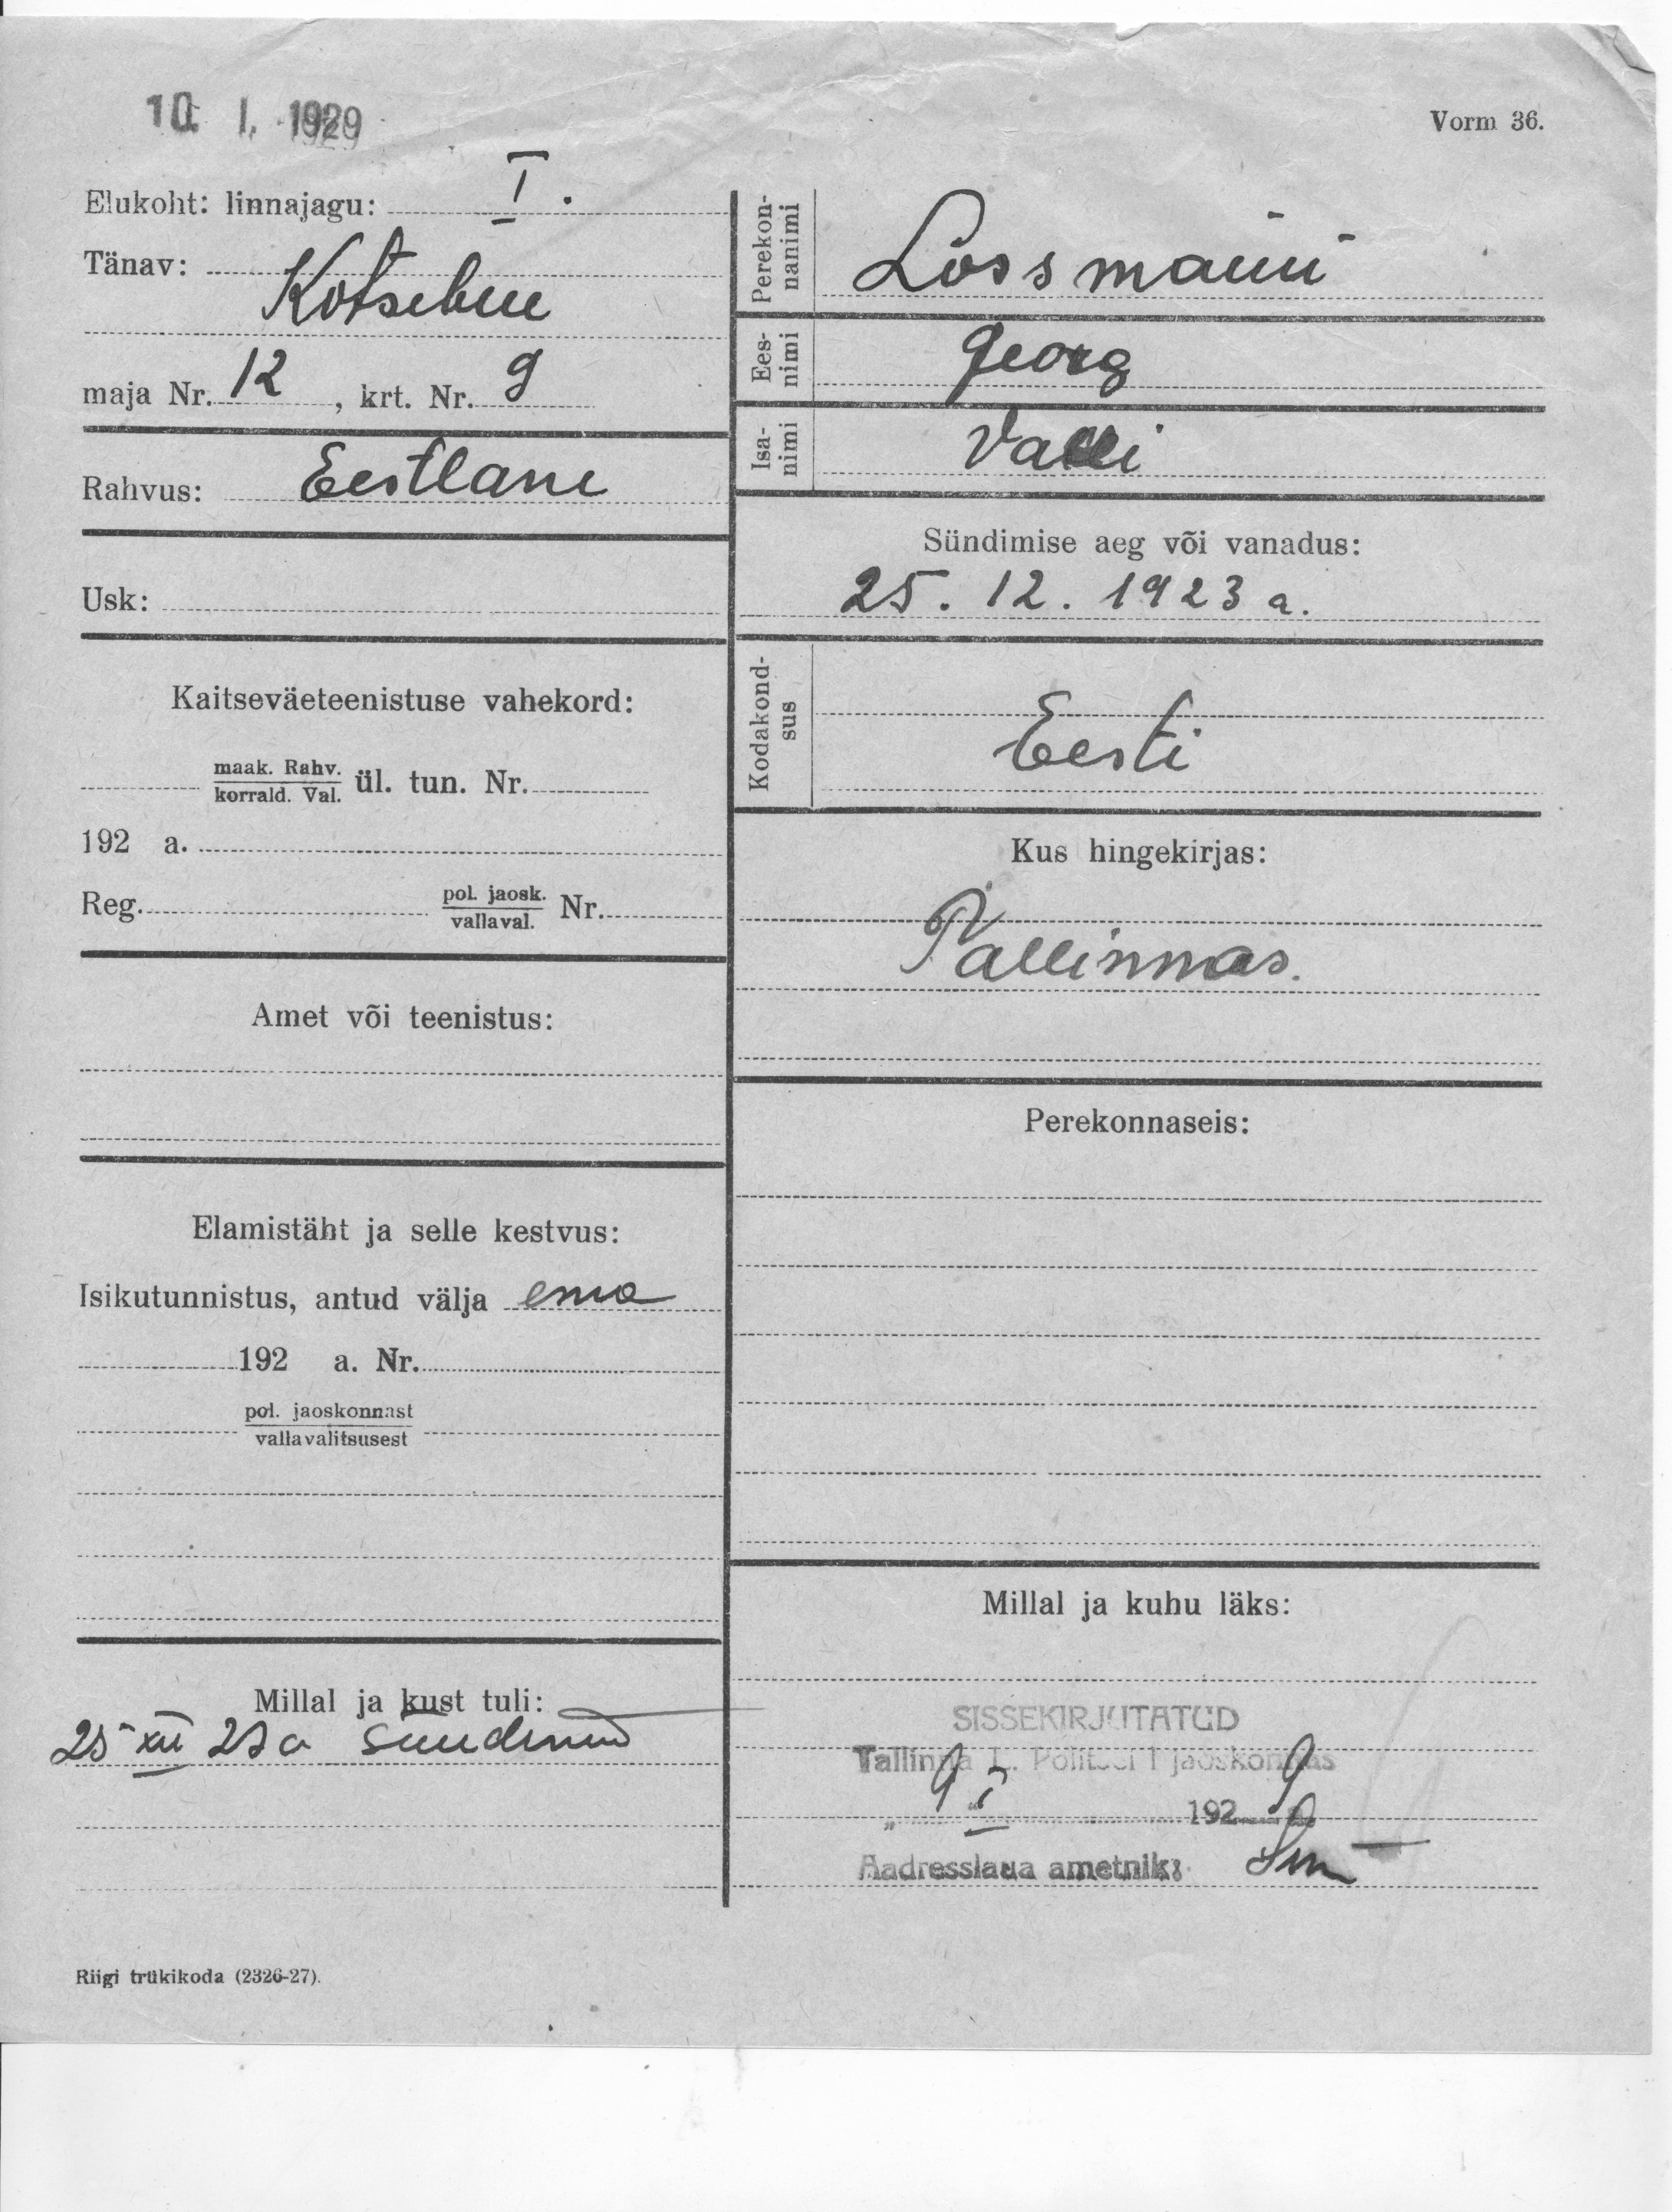 10. I. 1929
Vorm 36.
Elukoht: linnajagu: I.
Tänav:
Kotsebue
maja Nr. 12, krt. Nr. 9
Rahvus: Eestlane
Usk:
Kaitseväeteenistuse vahekord:
maak. Rahv.
korrald. Val.
ül. tun. Nr.
192 a.
Reg.
pol. jaosk.
vallaval.
Nr.
Amet või teenistus:
Elamistäht ja selle kestvus:
Isikutunnistus, antud välja ema
192 a. Nr.
pol. jaoskonnast
vallavalitsusest
Millal ja kust tuli:
25 XII 23 a sündinud
Riigi trükikoda (2326-27).
Perekon-
nanimi
Lossmann
Ees-
nimi
Georg
Isa-
nimi
Sündimise aeg või vanadus:
25. 12. 1923 a.
Kodakond-
sus
Eesti
Kus hingekirjas:
Tallinnas.
Perekonnaseis:
Millal ja kuhu läks:
SISSEKIRJUTATUD
Tallinna L. Politsei I jaoskonnas
„ 9 I 192 9
Aadresslaua ametnik: